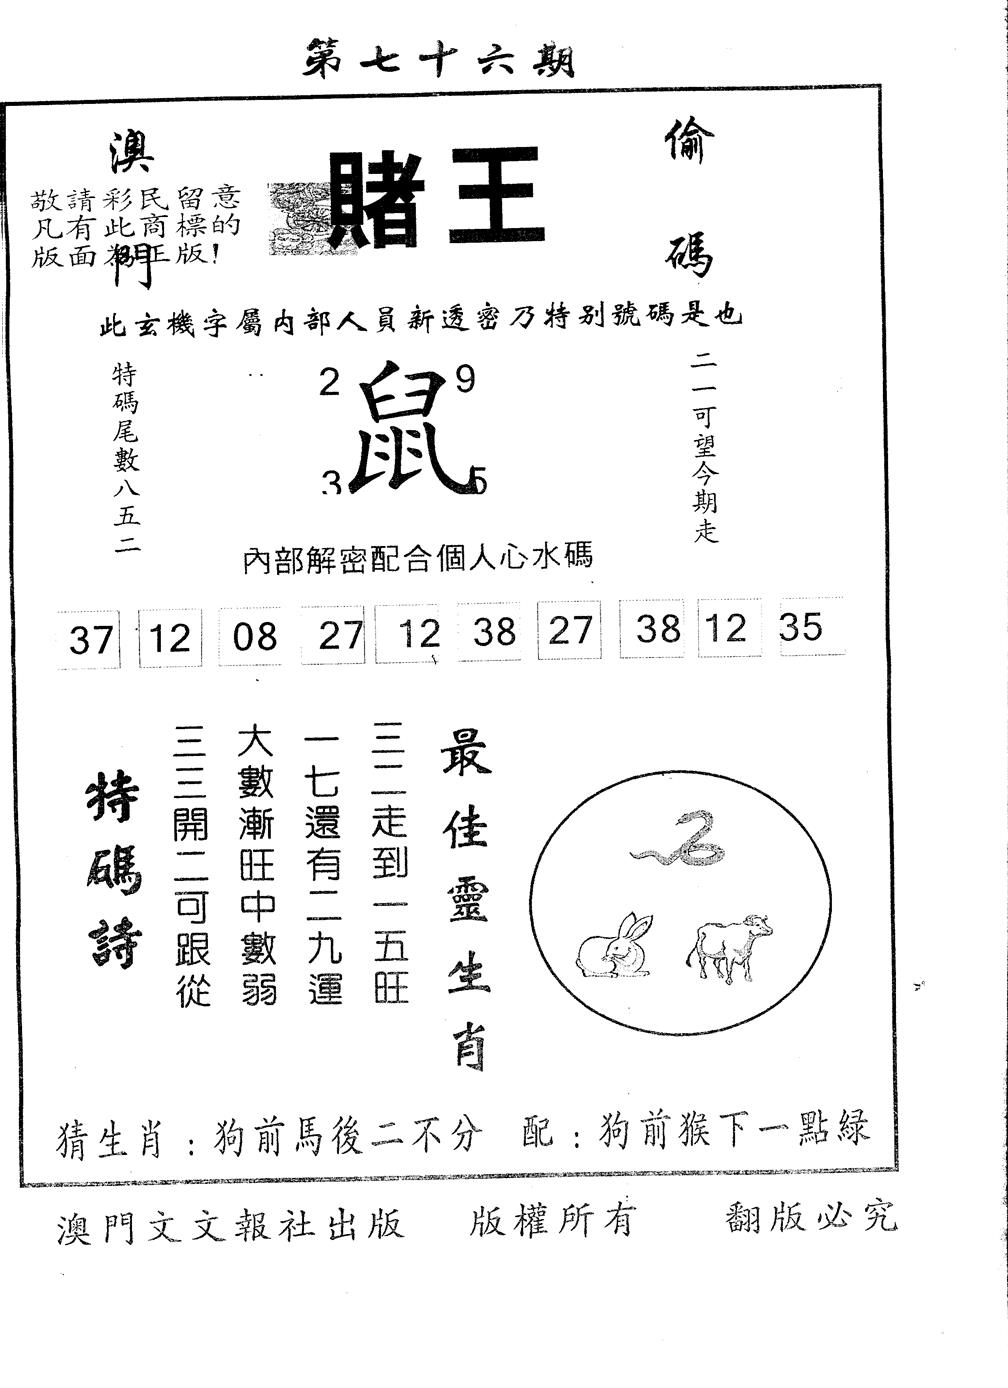 第七十六期
澳門
賭王
偷碼
敬請彩民留意
凡有此商標的
版面為正版!
此玄機字屬內部人員新透密乃特别號碼是也
特碼尾數八五二
2 9
鼠
3 5
二一可望今期走
內部解密配合個人心水碼
37 12 08 27 12 38 27 38 12 35
最佳靈生肖
三二走到一五旺
一七還有二九運
大數漸旺中數弱
三三開二可跟從
特碼詩
猜生肖:狗前馬後二不分 配:狗前猴下一點緑
澳門文文報社出版 版權所有 翻版必究